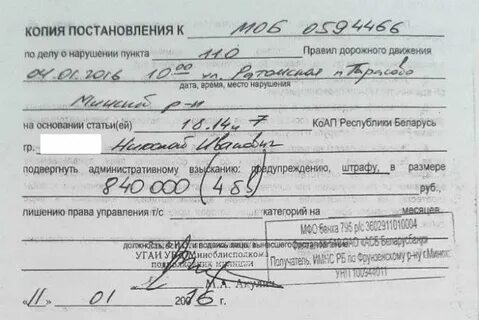 КОПИЯ ПОСТАНОВЛЕНИЯ К МОБ 0594466
по делу о нарушении пункта 11.0 Правил дорожного движения
04.01.2016 10.00 ул.
дата, время, место нарушения
Минский р-н
на основании статьи(ей) 18.14 ч 7 КоАП Республики Беларусь
гр. Николай Иванович
подвергнуть административному взысканию: предупреждению, штрафу, в размере
840 000 (4 бв) руб.,
лишению права управления т/с категорий на месяцев
МФО банка 795 р/с 3602911010004
ОАО «АСБ Беларусбанк»
Получатель: ИМНС РБ по Фрунзенскому р-ну г.Минска
УНП 100944011
должность,
УГАИ УВД Миноблисполкома
подполковник милиции
М.А.
«11» 01 2016 г.